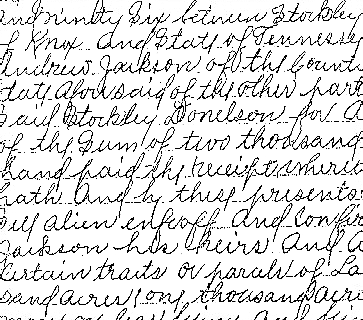 and ninety Six between Stockley
of Knox and State of Tennessee
Andrew Jackson of the Count
State Aforesaid of the other part
Said Stockley Donelson for A
of the Sum of two thousand
hand paid the receipt where
hath And by these presents
Sell alien enfeoff And Confir
Jackson his heirs And A
certain traits or parcels of La
sand acres (one thousand Acre